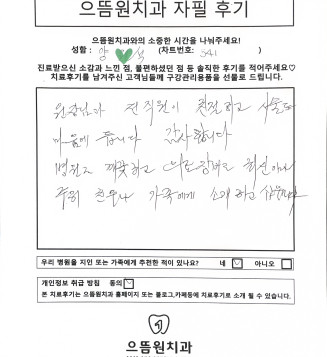 으뜸원치과 자필 후기
으뜸원치과와의 소중한 시간을 나눠주세요!
성함 : 양 석 (차트번호: 541 )
진료받으신 소감과 느낀 점, 불편하셨던 점 등 솔직한 후기를 적어주세요♡
치료후기를 남겨주신 고객님들께 구강관리용품을 선물로 드립니다.
원장님과 전직원이 친절하고 시술도
마음에 듭니다 감사합니다
병원도 깨끗하고
주위 친구나 가족에게 소개하고 싶습니다
우리 병원을 지인 또는 가족에게 추천한 적이 있나요? 네 ☑ 아니오 ☐
개인정보 취급 방침 동의 ☑
본 치료후기는 으뜸원치과 홈페이지 또는 블로그,카페등에 치료후기로 소개 될 수 있습니다.
으뜸원치과